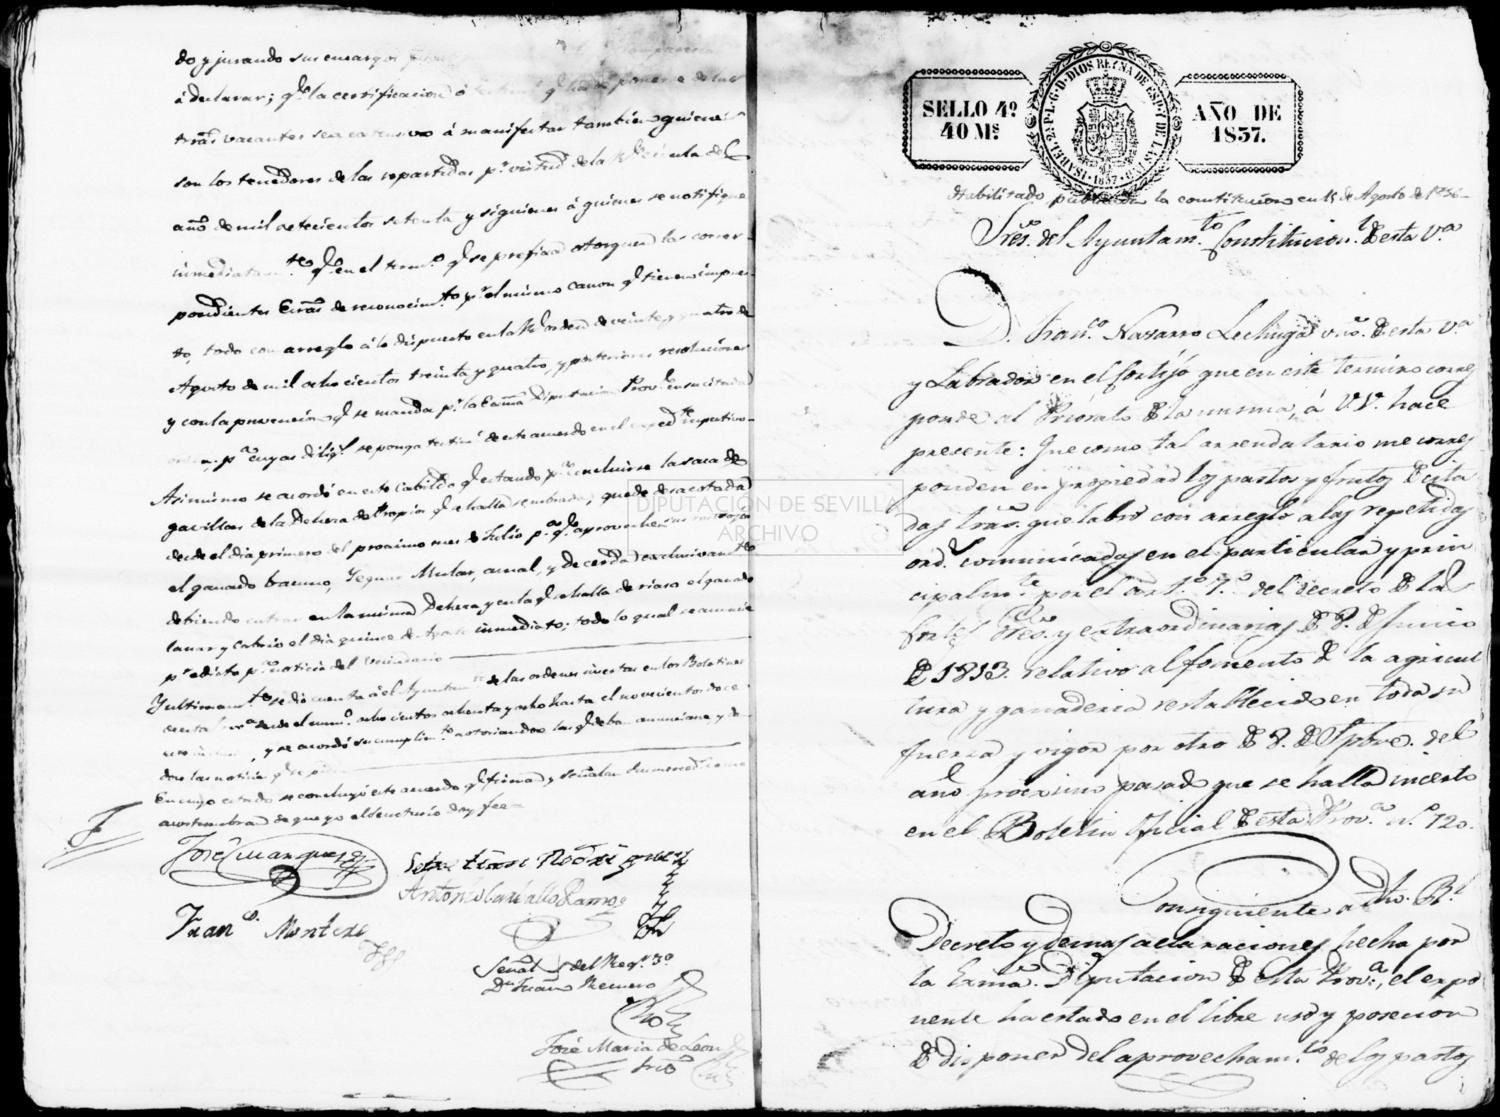 do y jurando sus encargos
á declarar; qe. la certificacion ó testimo. qe. ha de ponerse de las
trras. vacantes sea estensivo á manifestar tambien quienes
son los tenedores de las repartidas pr. virtud de la Rl. cedula del
año de mil setecientos setenta y siguienes á quienes se notifique
inmediatamte. qe. en el termo. qe. se prefixa otorguen las corres-
pondientes Escras. de reconocimto. pr. el mismo canon qe. tienen impues-
to, todo con arreglo á lo dispuesto en la Rl. orden de veinte y quatro de
Agosto de mil ochocientos treinta y quatro, y posteriores resoluciones
y con la prevencion qe. se manda pr. la Exma. Diputacion Provl. en su citada
orden. pa. cuyas diligs. se ponga testimo. de este acuerdo en el expedte. respectivo
Asimismo se acordó en este Cabildo qe. estando pa. concluirse la saca de
gavillas de la Dehesa de Propios qe. se halla sembrada, quede desacotada
desde el dia primero del proximo mes de Julio pa. qe. aprovechen sus rastrojos
el ganado bacuno, Yeguar Mular, asnal, y de cerda exclusivamte.
debiendo entrar en la misma Dehesa y en la qe. se halla de riaro el ganado
lanar y cabrio el dia quince de Agosto inmediato; todo lo qual se anuncie
pr. edicto pa. noticia del Vecindario
Y ultimamte. se dió cuenta á el Ayuntamto. de las ordenes insertas en los Boletines
desde el numo. ochocientos ochenta y ocho hasta el novecientos doce
y se acordó su cumplimto. notoriandose las qe. deban anunciarse y dan-
dose las noticias qe. se piden
En cuyo estado se concluyó este acuerdo qe. firman y señalan sus mercedes como
acostumbran de que yo el Secretario doy fee
José Marquez
Antonio Carballo Ramos
Franco. Montero
Señal del Regr. 3o.
Dn. Juan Romero
José Maria de Leon
Srio.
SELLO 4º.
40 Ms.
ISABEL 2ª. P. L. G. D. DIOS REYNA DE ESPª. Y DE LAS YNS. 1837
AÑO DE
1837.
Habilitado publicada la constitucion en 15 de Agosto de 1836
Sres. del Ayuntamto. Constitucionl. de esta Va.
D. Franco. Navarro Lechuga vo. de esta Va.
y Labrador en el Cortijo que en este termino corres
ponde al Priorato de la misma, á V.V. hace
presente: Que como tal arrendatario me corres
ponden en propiedad los pastos y frutos de esta
das trras. que labro con arreglo a las repetidas
ords. comunicadas en el particular y prin
cipalmte. por el arto. 7o. del decreto de las
Cortes Gres. y extraordinarias de 8. de Junio
de 1813. relativo al fomento de la agricul
tura y ganaderia restablecido en toda su
fuerza y vigor por otro de 8. de Spbre. del
año proximo pasado que se halla incerto
en el Boletin Oficial de esta Prova. no. 720.
Consiguiente a dho. Rl.
Decreto y demas aclaraciones hecha por
la Exma. Diputacion de esta Prova. el expo
nente ha estado en el libre uso y posecion
de disponer del aprovechamto. de los pastos
DIPUTACIÓN DE SEVILLA
ARCHIVO